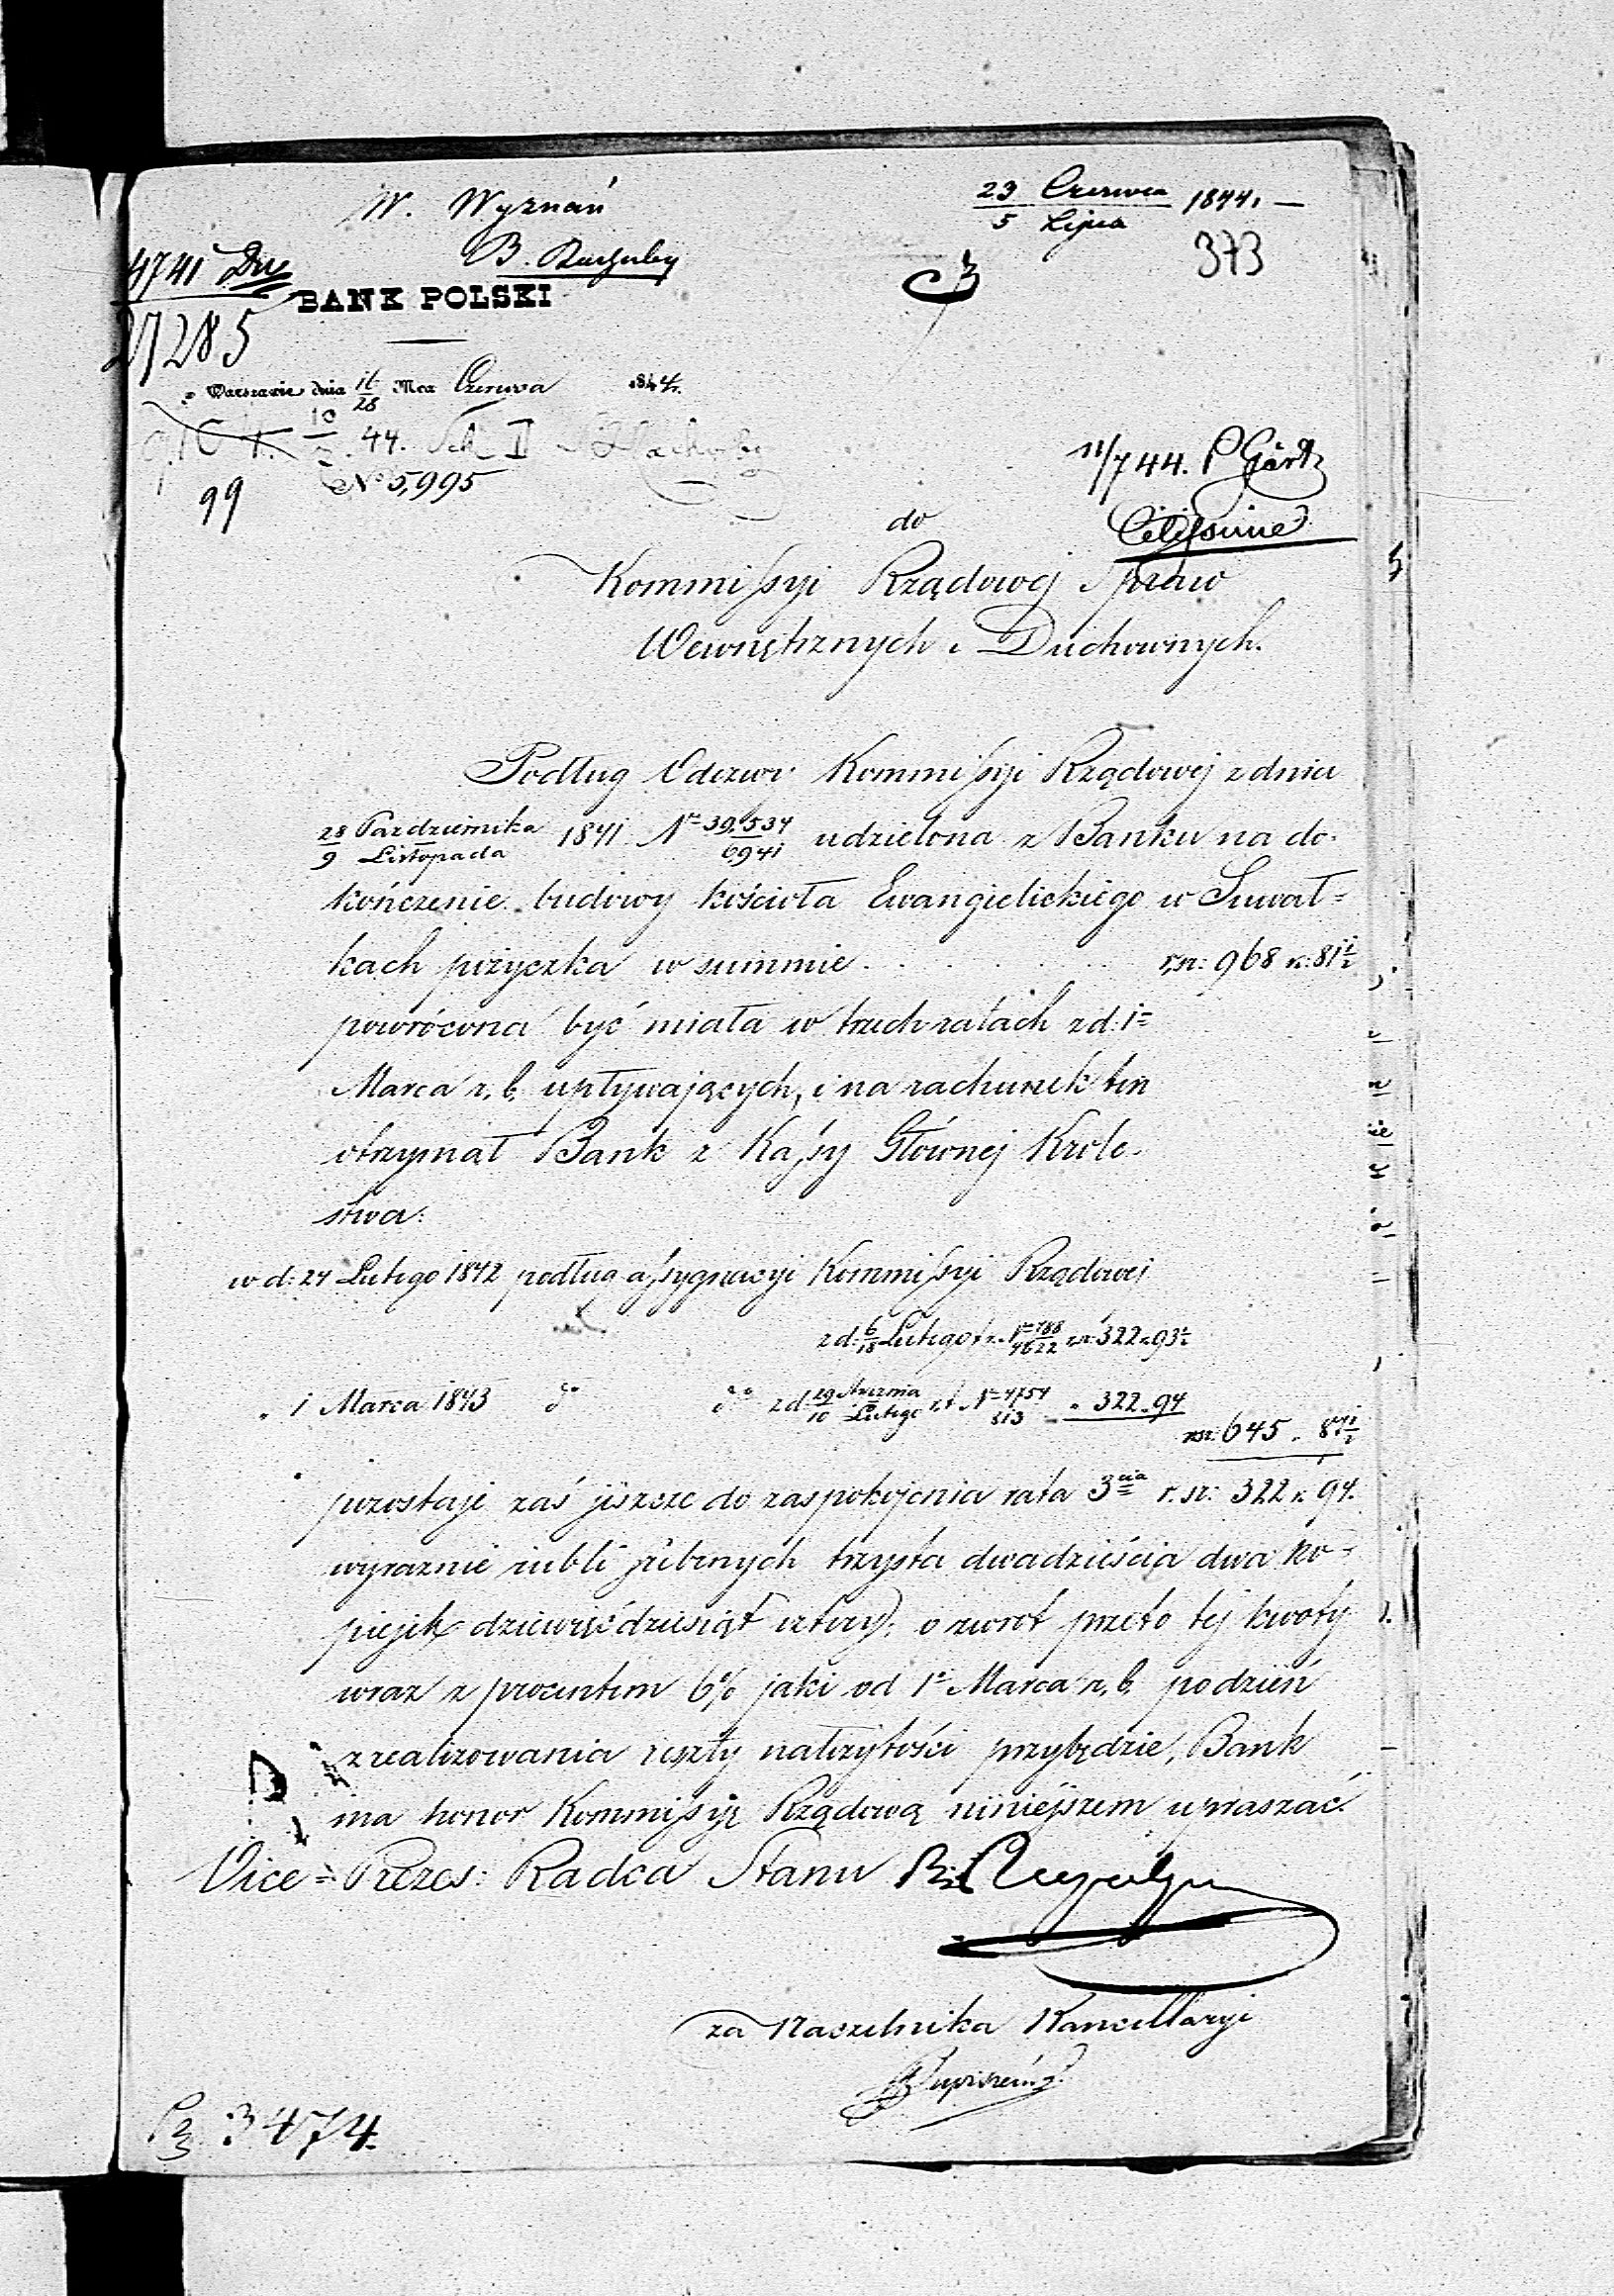 W. Wyznań
23 Czerwca / 5 Lipca 1844. —
373
4741
27285
BANK POLSKI
w Warszawie dnia 16/28 Mca Czerwca 1844.
44.
II
No 5,995
99
11/7 44.
do
Kommissyi Rządowej Spraw
Wewnętrznych i Duchownych.
Podług Odezwy Kommissyi Rządowej z dnia
28 Pazdziernika / 9 Listopada 1841 No 39,534/6941 udzielona z Banku na do-
kończenie budowy kościoła Ewangielickiego w Suwał=
kach pożyczka w summie . . . . . . r.sr: 968 k: 81½
powrócona być miała w trzech ratach z d: 1=
Marca r. b. upływających, i na rachunek ten
otrzymał Bank z Kassy Głównej Krole-
stwa:
w d: 24 Lutego 1842 podług assygnacyi Kommissyi Rządowej
z d: 6/18 Lutego t. r. No 788/4622 r.sr: 322 k 93½
„ 1 Marca 1843 do do z d: 29 Stycznia / 10 Lutego r. t. No 4754/513 — „ 322 „ 94
rsr: 645 „ 87½
pozostaje zaś jeszcze do zaspokojenia rata 3cia r. sr: 322 k. 94.
wyraznie rubli srebrnych trzysta dwadzieścia dwa ko-
piejek dziewięćdziesiąt cztery); o zwrot przeto tej kwoty
wraz z procentem 6% jaki od 1o Marca r. b. po dzień
zrealizowania reszty należytości przybędzie, Bank
ma honor Kommissyię Rządową niniejszem upraszać.
Vice = Prezes: Radca Stanu
za Naczelnika Kancellaryi
3474